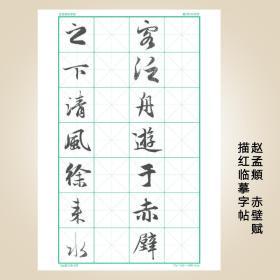 客泛舟遊于赤壁
之下清風徐来水
赵孟頫 赤壁赋
描红临摹字帖